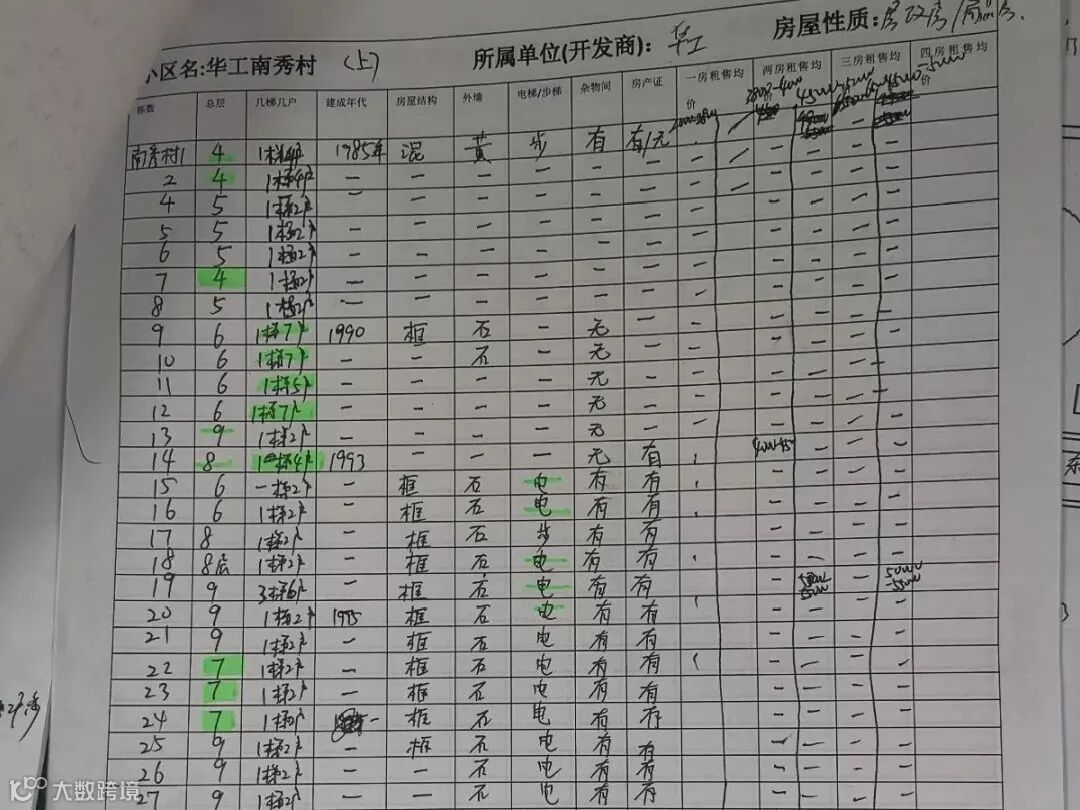 小区名:华工南秀村 (上) 所属单位(开发商): 华工 房屋性质:房改房/
栋数 总层 几梯几户 建成年代 房屋结构 外墙 电梯/步梯 杂物间 房产证 一房租售均价 两房租售均价 三房租售均价 四房租售均价
南秀村1 4 1梯4户 1985年 混 黄 步 有 有/无
2 4 1梯4户 — — — — — —
4 5 1梯2户 — — — — — —
5 5 1梯2户 — — — — —
6 5 1梯2户 — — — — —
7 4 1梯2户 — — — — — —
8 5 1梯2户 — — — — — —
9 6 1梯7户 1990 框 石 — 无 —
10 6 1梯7户 — — 石 — 无 —
11 6 1梯5户 — — — — 无 —
12 6 1梯7户 — — — — 无 —
13 9 1梯2户 — — — — 无 —
14 8 1梯4户 1993 — — — 无 有
15 6 一梯2户 — 框 石 电 有 有
16 6 1梯2户 — 框 石 电 有 有
17 8 1梯2户 — 框 石 步 有 有
18 8层 1梯2户 — 框 石 电 有 有
19 9 3梯6户 — 框 石 电 有 有
20 9 1梯2户 1995 框 石 电 有 有
21 9 1梯2户 — 框 石 电 有 有
22 7 1梯2户 — 框 石 电 有 有
23 7 1梯2户 — 框 石 电 有 有
24 7 — 框 石 电 有 有
25 9 1梯2户 — 框 石 电 有 有
26 9 1梯2户 — — 石 电 有 有
27 9 1梯2户 — — 石 电 有 有
大数跨境